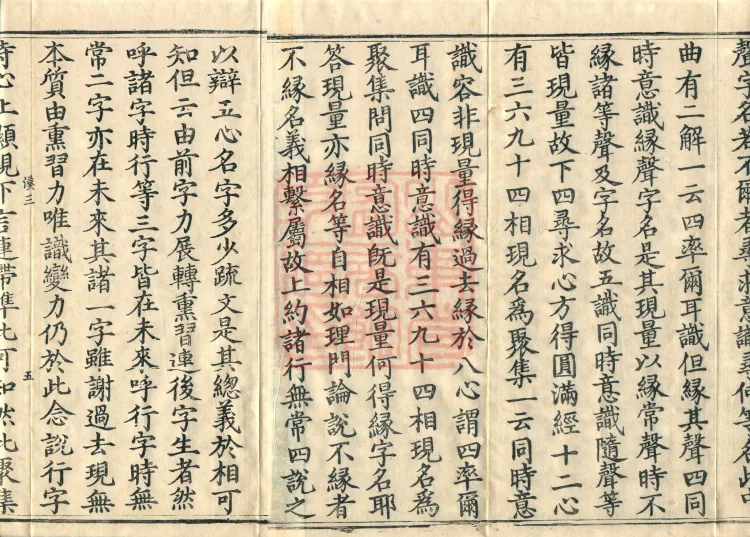 聲字名若不爾者尋求意識尋何等名此中
曲有二解一云四率爾耳識但緣其聲四同
時意識緣聲字名是其現量以緣常聲時不
緣諸等聲及字名故五識同時意識隨聲等
皆現量故下四尋求心方得圓滿經十二心
有三六九十四相現名為聚集一云同時意
識容非現量得緣過去緣於八心謂四率爾
耳識四同時意識有三六九十四相現名為
聚集問同時意識旣是現量何得緣字名耶
答現量亦緣名等自相如理門論說不緣者
不緣名義相繫屬故上約諸行無常四說之
以辯五心名字多少䟽文是其緫義於相可
知但云由前字力展轉熏習連後字生者然
呼諸字時行等三字皆在未來呼行字時無
常二字亦在未來其諸一字雖謝過去現無
本質由熏習力唯識變力仍於此念說行字
時心上顯現下言連帶準此可知然此聚集
五